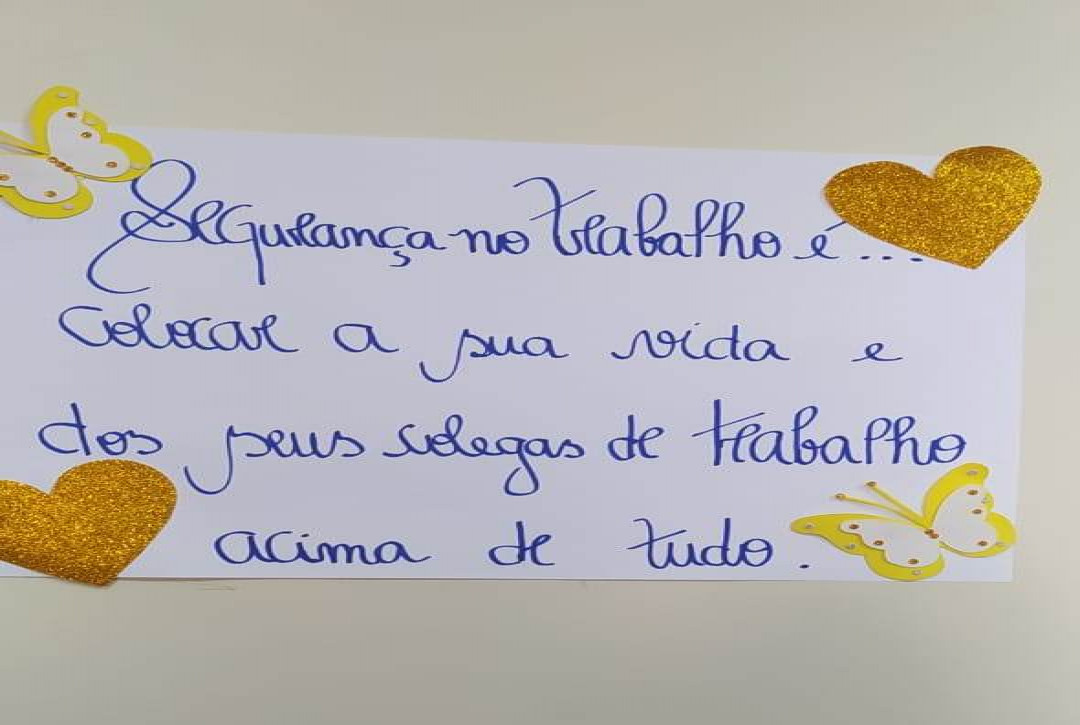 Segurança no trabalho é...
colocar a sua vida e
dos seus colegas de trabalho
acima de tudo.